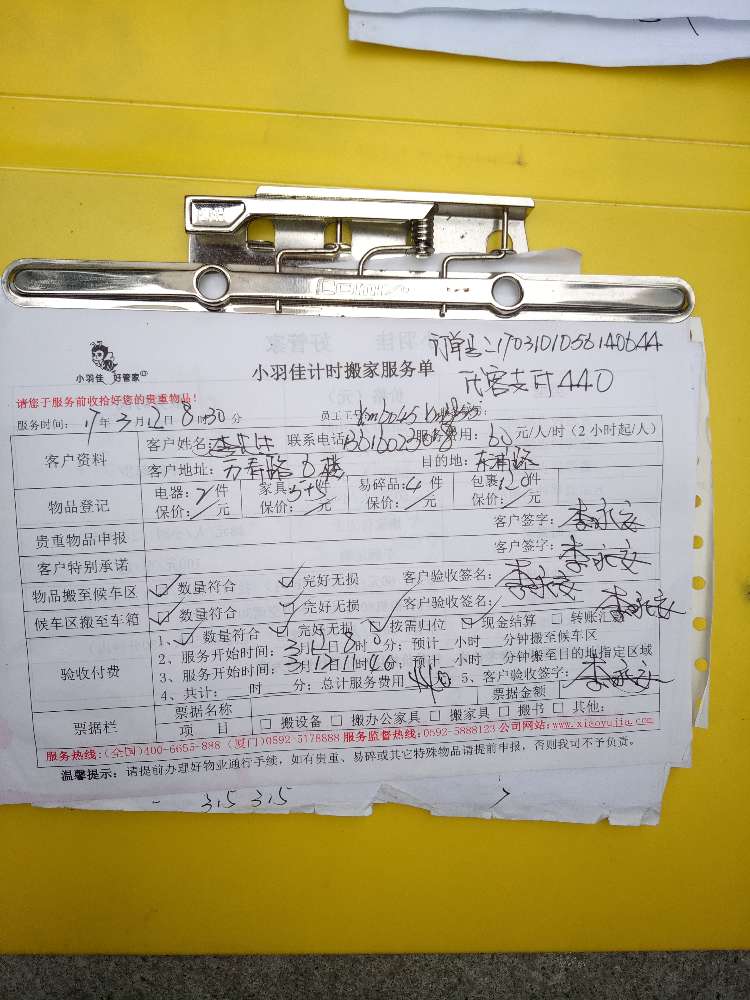 订单号:1703101056140644
代客支付440
小羽佳 好管家
小羽佳计时搬家服务单
请您于服务前收拾好您的贵重物品!
服务时间: 17年3月12日8时30分 员工工号
客户资料 客户姓名: 联系电话 服务费用: 60元/人/时(2小时起/人)
客户地址: 万寿路6楼 目的地:
物品登记 电器: 2件 家具 5+5件 易碎品: 4件 包裹 120件
保价: 元 保价: 元 保价: 元 保价: 元
贵重物品申报 客户签字: 李永安
客户特别承诺 客户签字: 李永安
物品搬至候车区 ☑ 数量符合 ☑ 完好无损 客户验收签名: 李永安
候车区搬至车箱 ☑ 数量符合 ☑ 完好无损 客户验收签名: 李永安
验收付费 1、☑ 数量符合 ☑ 完好无损 ☑ 按需归位 ☑ 现金结算 □ 转账汇
2、服务开始时间: 3月12日8时 0分; 预计__小时__分钟搬至候车区
3、服务开始时间: 3月12日11时40分; 预计__小时__分钟搬至目的地指定区域
4、共计: __时__分; 总计服务费用 440 5、客户验收签字: 李永安
票据栏 票据名称 票据金额
项 目 □ 搬设备 □ 搬办公家具 □ 搬家具 □ 搬书 □ 其他:
服务热线:(全国)400-6655-888 (厦门)0592-5178888 服务监督热线:0592-5888123 公司网站:www.xiaoyujia.com
温馨提示: 请提前办理好物业通行手续, 如有贵重、易碎或其它特殊物品请提前申报, 否则我可不予负责。
315 315